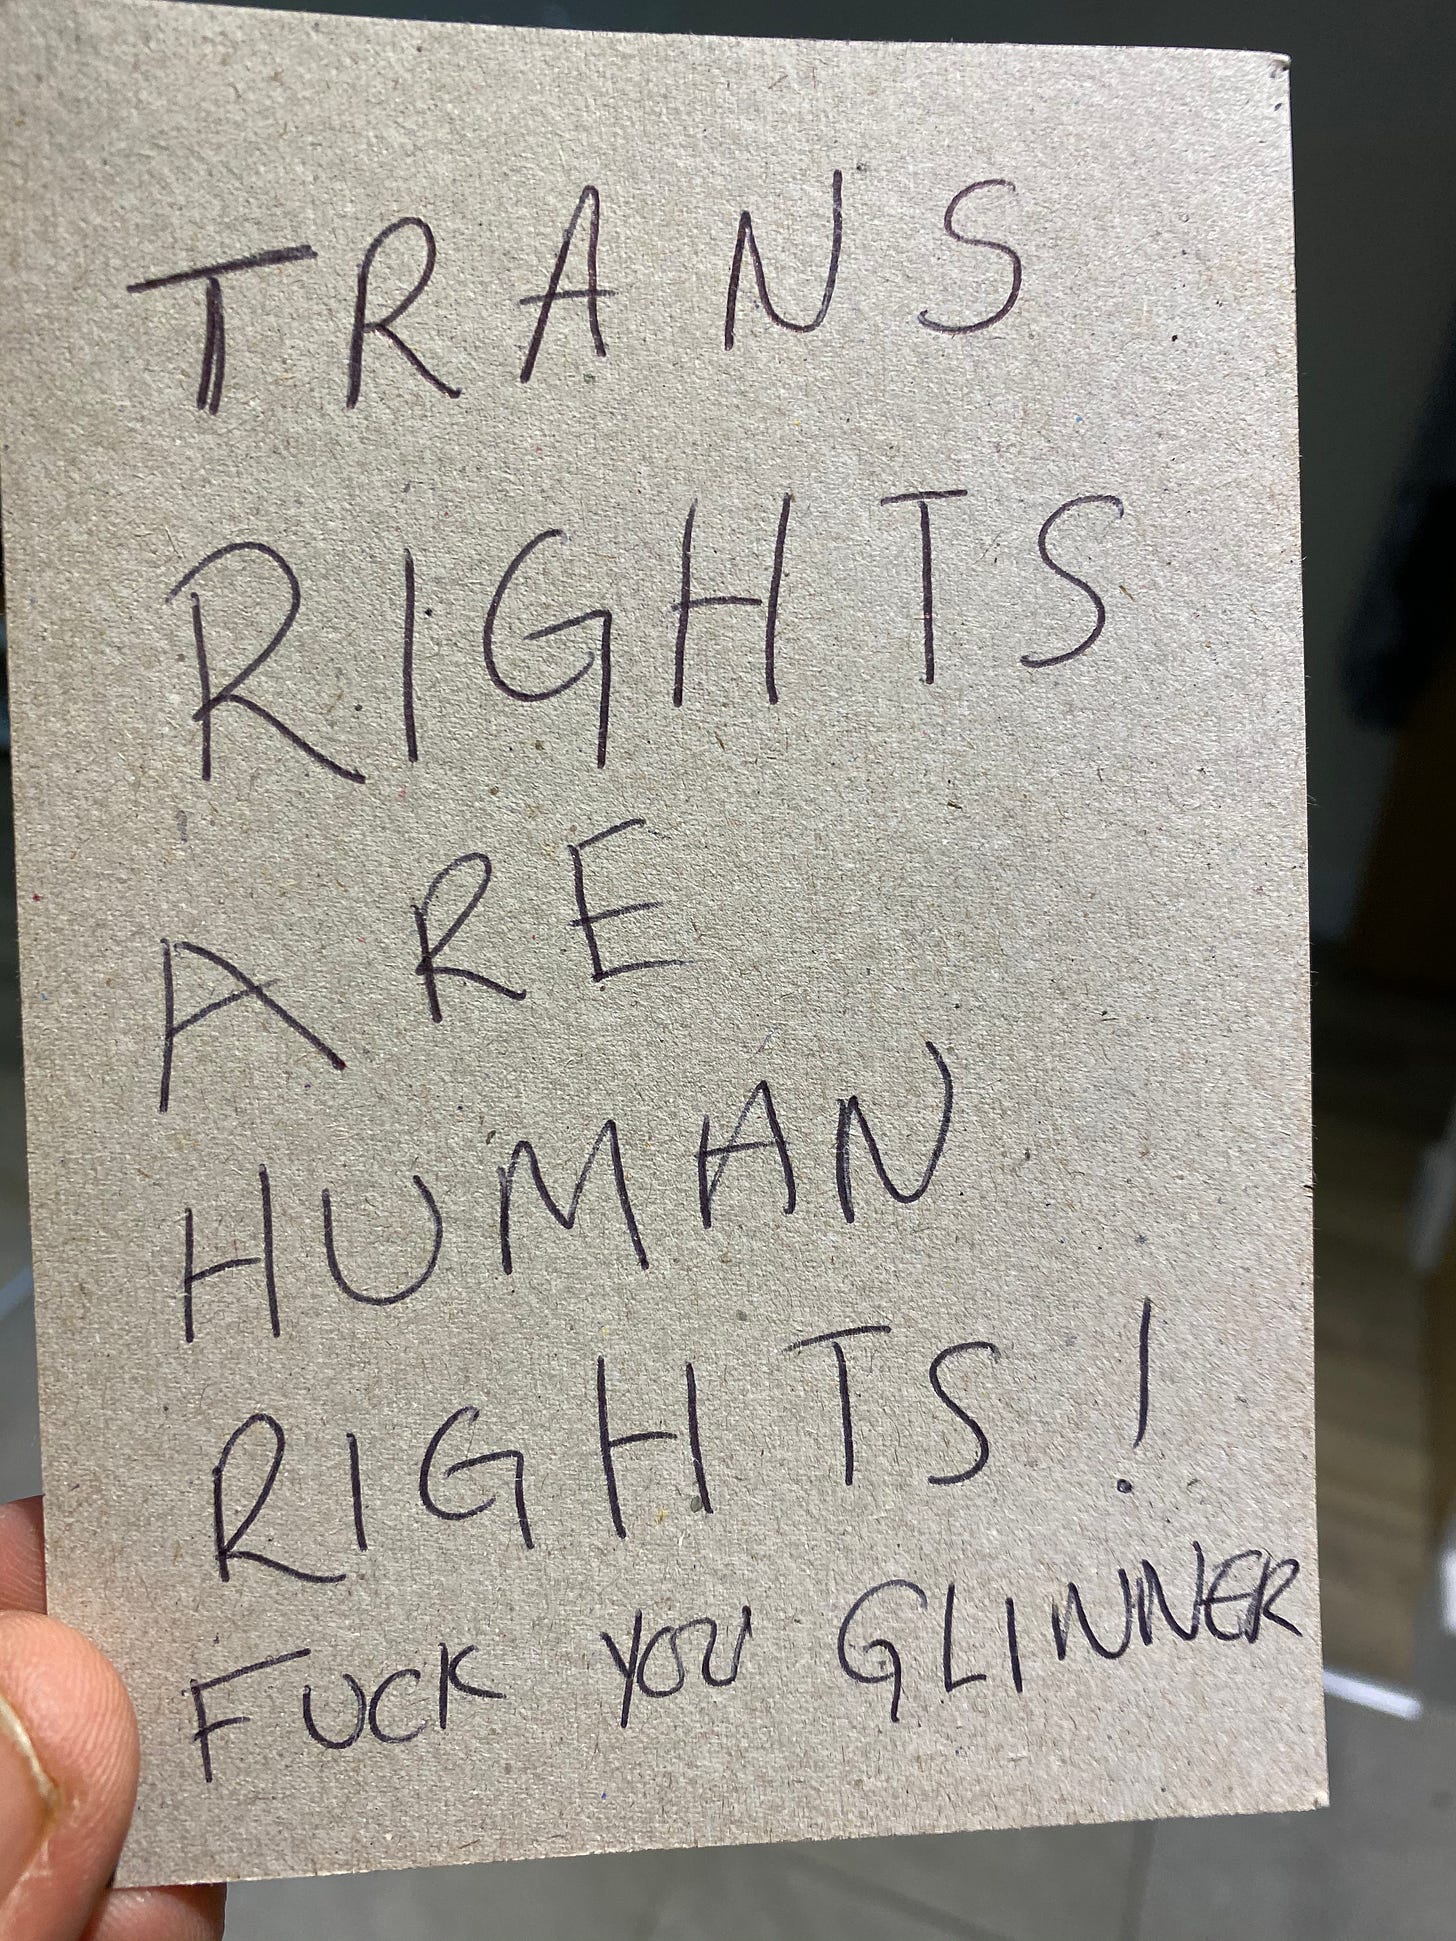 TRANS
RIGHTS
ARE
HUMAN
RIGHTS!
FUCK YOU GLINNER